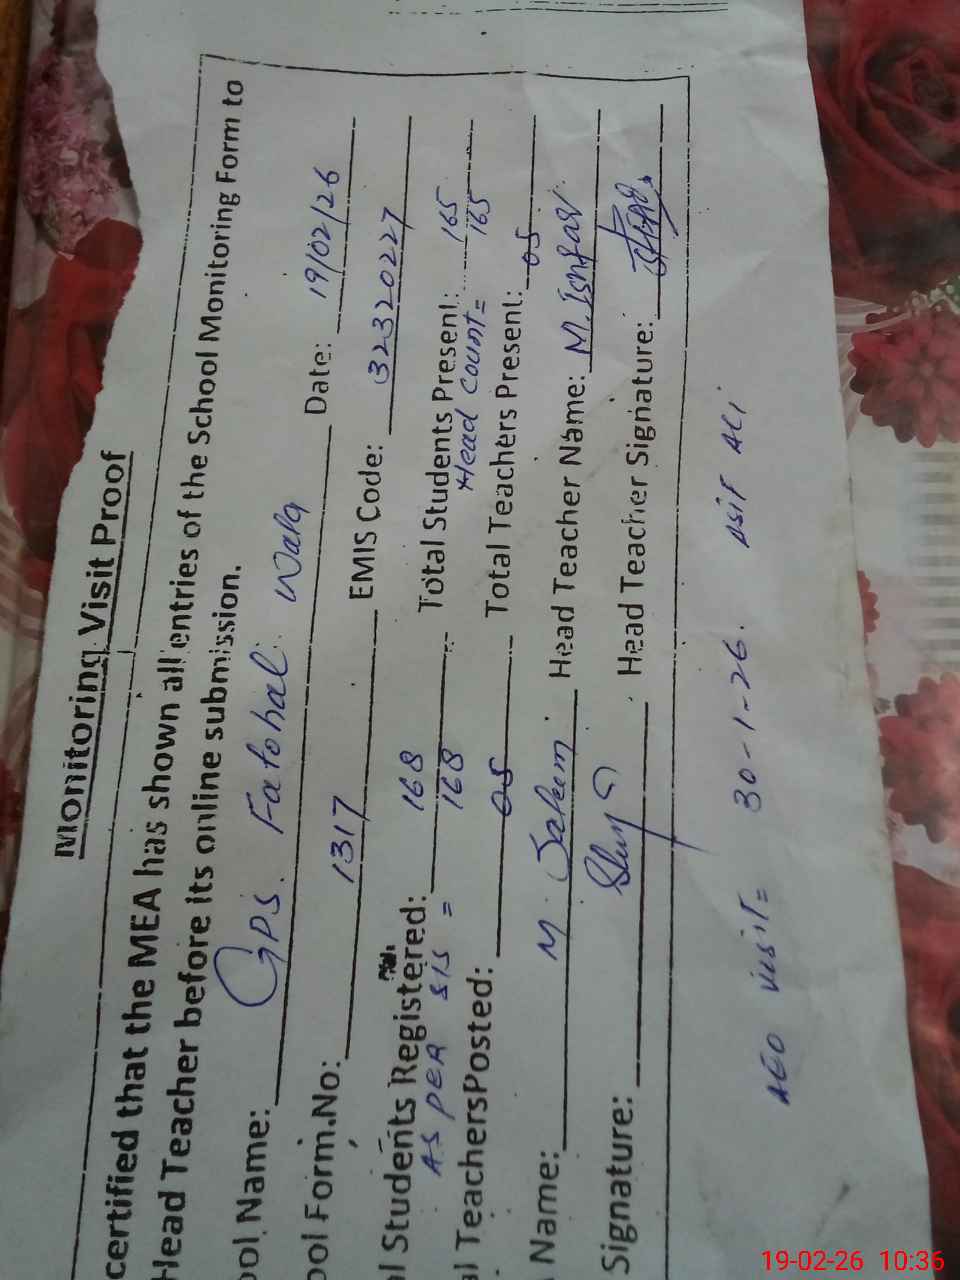 Monitoring Visit Proof
certified that the MEA has shown all entries of the School Monitoring Form to
Head Teacher before its online submission.
ool Name: GPS. Fatohal Wala Date: 19/02/26
ool Form.No: 1317 EMIS Code: 32320227
l Students Registered: 168 Total Students Present: 165
AS PER SIS = 168 Head Count= 165
l TeachersPosted: 05 Total Teachers Present: 05
Name: M. Saleem Head Teacher Name: M.
Signature: Head Teacher Signature:
AEO visit= 30-1-26. ASIF ALI
19-02-26 10:36